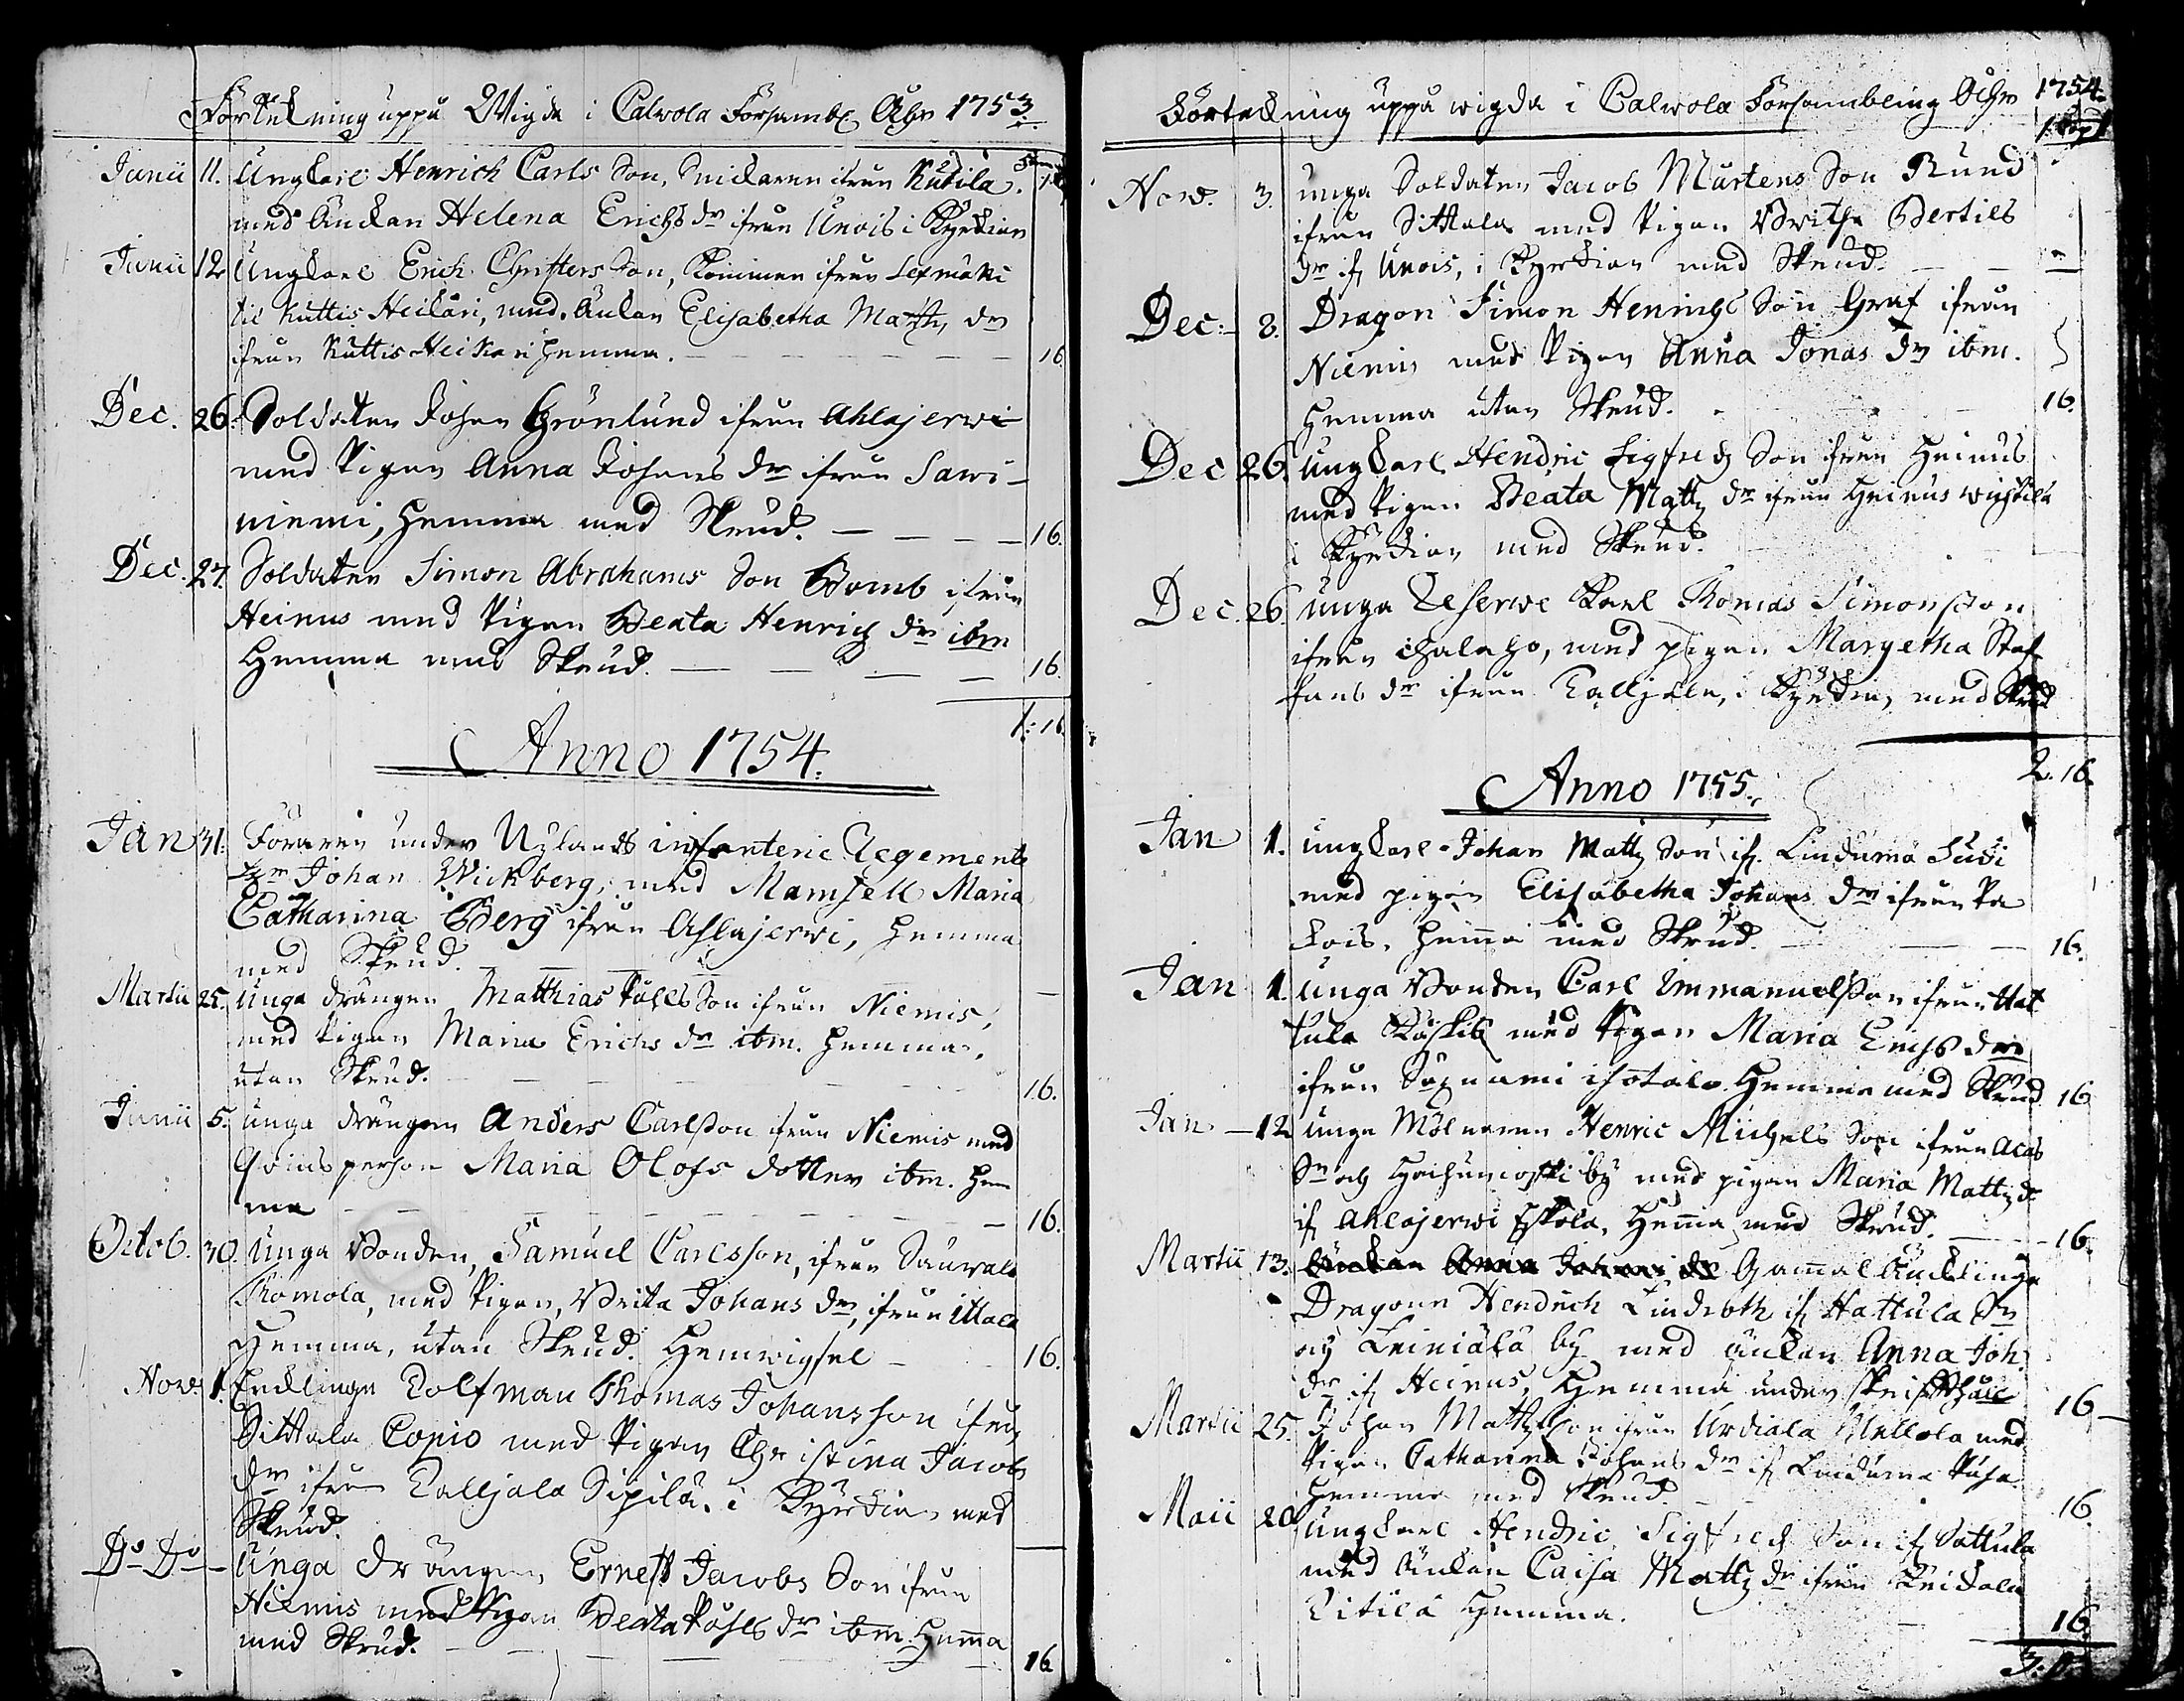 Förtekning uppå Wigda i Calwola Församb. Åhr 1753.
Junii 11. Ungkarl Henrich Carls Son, Snickaren ifrån Kutila.
med Änckan Helena Erichs dr ifrån Unois i Kyrckian
Junii 12 Ungkarl Erich Christers Son, kommen ifrån Lepmäki
til Kuttis Heickari, med Änkan Elisabetha Matts dr
ifrån Kuttis Heikari hemma. 16
Dec. 26. Soldaten Johan Grönlund ifrån Ahlajerwi
med Pigan Anna Johans dr ifrån Sawi-
niemi, hemma med Skrud. 16.
Dec. 27. Soldaten Simon Abrahams Son Bomb ifrån
Heinus med Pigan Beata Henrichs dr ibm
Hemma med Skrud. 16.
1: 16.
Anno 1754.
Jan 31. Föraren under Nylands infanterie Regemente
Hr Johan Wickberg, med Mamsell Maria
Catharina Berg ifrån Ahlajerwi, hemma
med Skrud.
Martii 25. Unga drängen Matthias Påhls Son ifrån Niemis,
med Pigan Maria Erichs dr ibm. hemma,
utan Skrud. 16.
Junii 5. unga drängen Anders Carlsson ifrån Niemis med
Qvinsperson Maria Olofs dotter ibm. hem
ma 16.
Octob. 30. Unga Bonden, Samuel Carlsson, ifrån Sauwala
Thomola, med Pigan, Brita Johans dr, ifrån Ittala
Hemma, utan Skrud. Hemwigsel 16.
Nov. 1. Encklingen Rolfman Thomas Johansson ifrån
Sittala Copio med Pigan Christina Jacobs
dr ifrån Talljala Sipilä. i Kyrckian med
Skrud.
Do Do Unga drängen Ernest Jacobs Son ifrån
Niemis med Pigan Beata Påhls dr ibm. hemma
med Skrud. 16
Förtekning uppå wigda i Calwola Försambling Åhr 1754.
Nov. 3. unga Soldaten Jacob Mårtens Son Rund
ifrån Sittala med Pigan Britha Bertils
dr if. Unois, i Kyrckian med Skrud.
Dec: 8. Dragon Simon Henrichs Son Graf ifrån
Niemis med Pigan Anna Jonas dr ibm.
Hemma utan Skrud. 16.
Dec 26. Ungkarl Hendric Sigfreds Son ifrån Heinus
med Pigan Beata Matts dr ifrån Heinus
i Kyrckian med Skrud.
Dec. 26. unga Reserwe Karl Thomas Simonsson
ifrån med pigan Margetha Staf
fans dr ifrån Talljala, i Kyrckian, med Skrud
2. 16.
Anno 1755.
Jan 1. ungkarl Johan Matts Son if. Lindumä
med pigan Elisabetha Johans dr ifrån Pa
kois. hemma med Skrud. 16.
Jan 1. Unga Bonden Carl Immanuelsson ifrån Hat
tula med Pigan Maria Erichs dr
ifrån Hemma med Skrud 16
Jan 12 unga Mölnaren Henric Michels Son ifrån Acas
Sn och by med pigan Maria Matts d.
if. Ahlajerwi Eskola, Hemma med Skrud. 16.
Martii 13. Änckan Anna Johans dr Gamal Äncklinge
Dragoun Hendrich Lindroth if. Hattula Sn
och Leiniälä by med änkan Anna Joh.
dr if. Heinus, Hemma under 16
Martii 25. Johan Mattsson ifrån Urdiala Mellola med
Pigan Catharina Johans dr if. Lindumä
hemma med Skrud. 16.
Maii 20 Ungkarl Hendric Sigfreds Son if. Sattula
med Änkan Caisa Matts dr ifrån Keikala
Hemma. 16